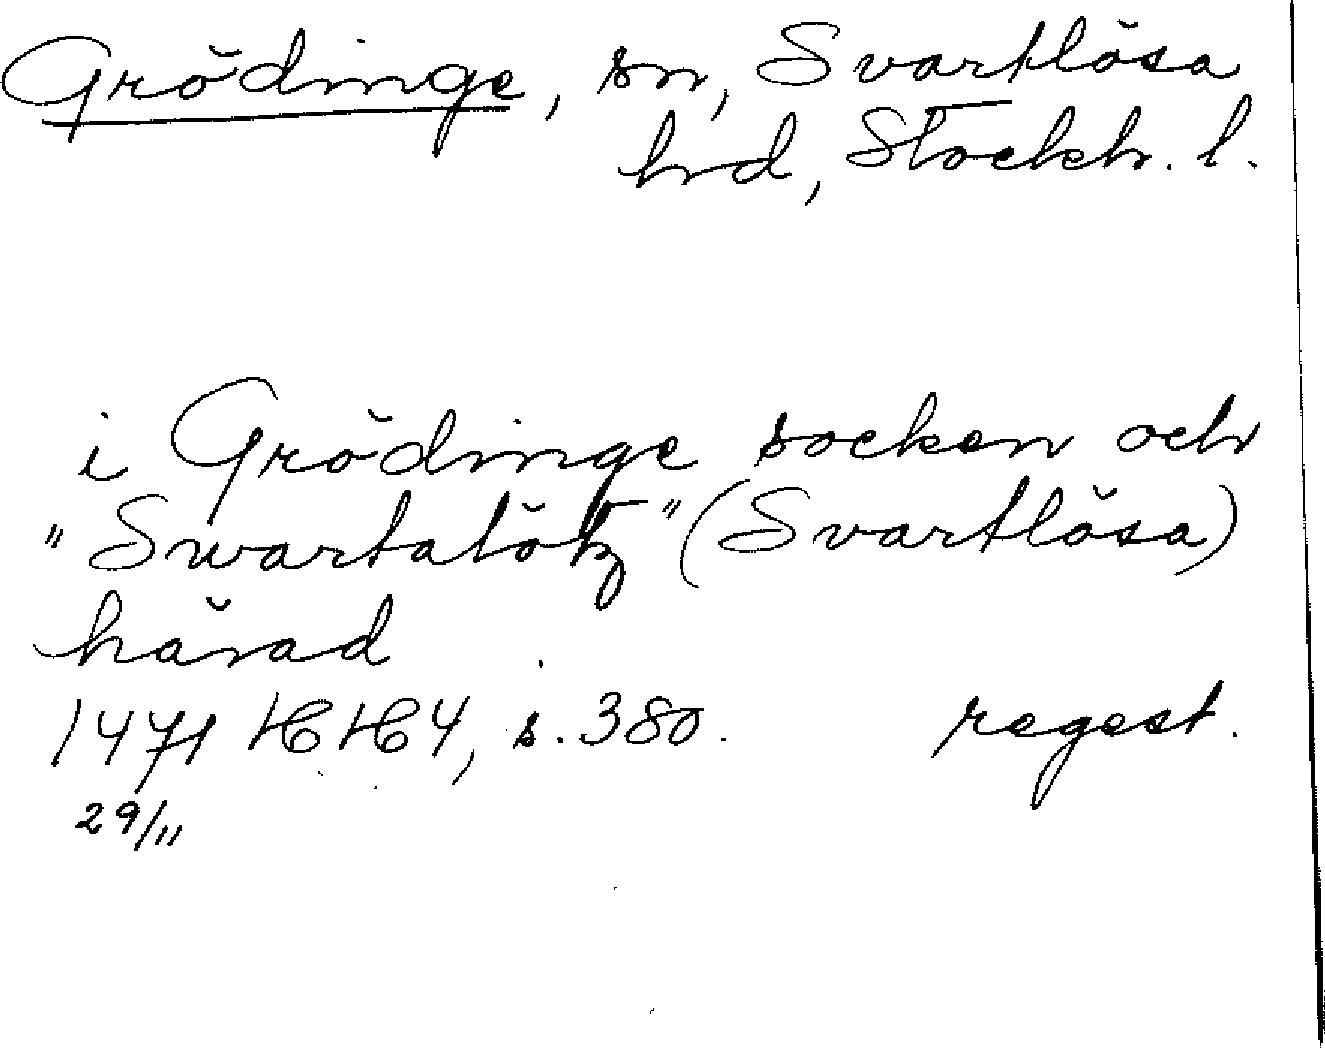 Grödinge, sn, Svartlösa
hrd, Stockh. l.
i Grödinge socken och
"Swartalötz" (Svartlösa)
härad
1471 HH 4, s. 380. regest.
29/11